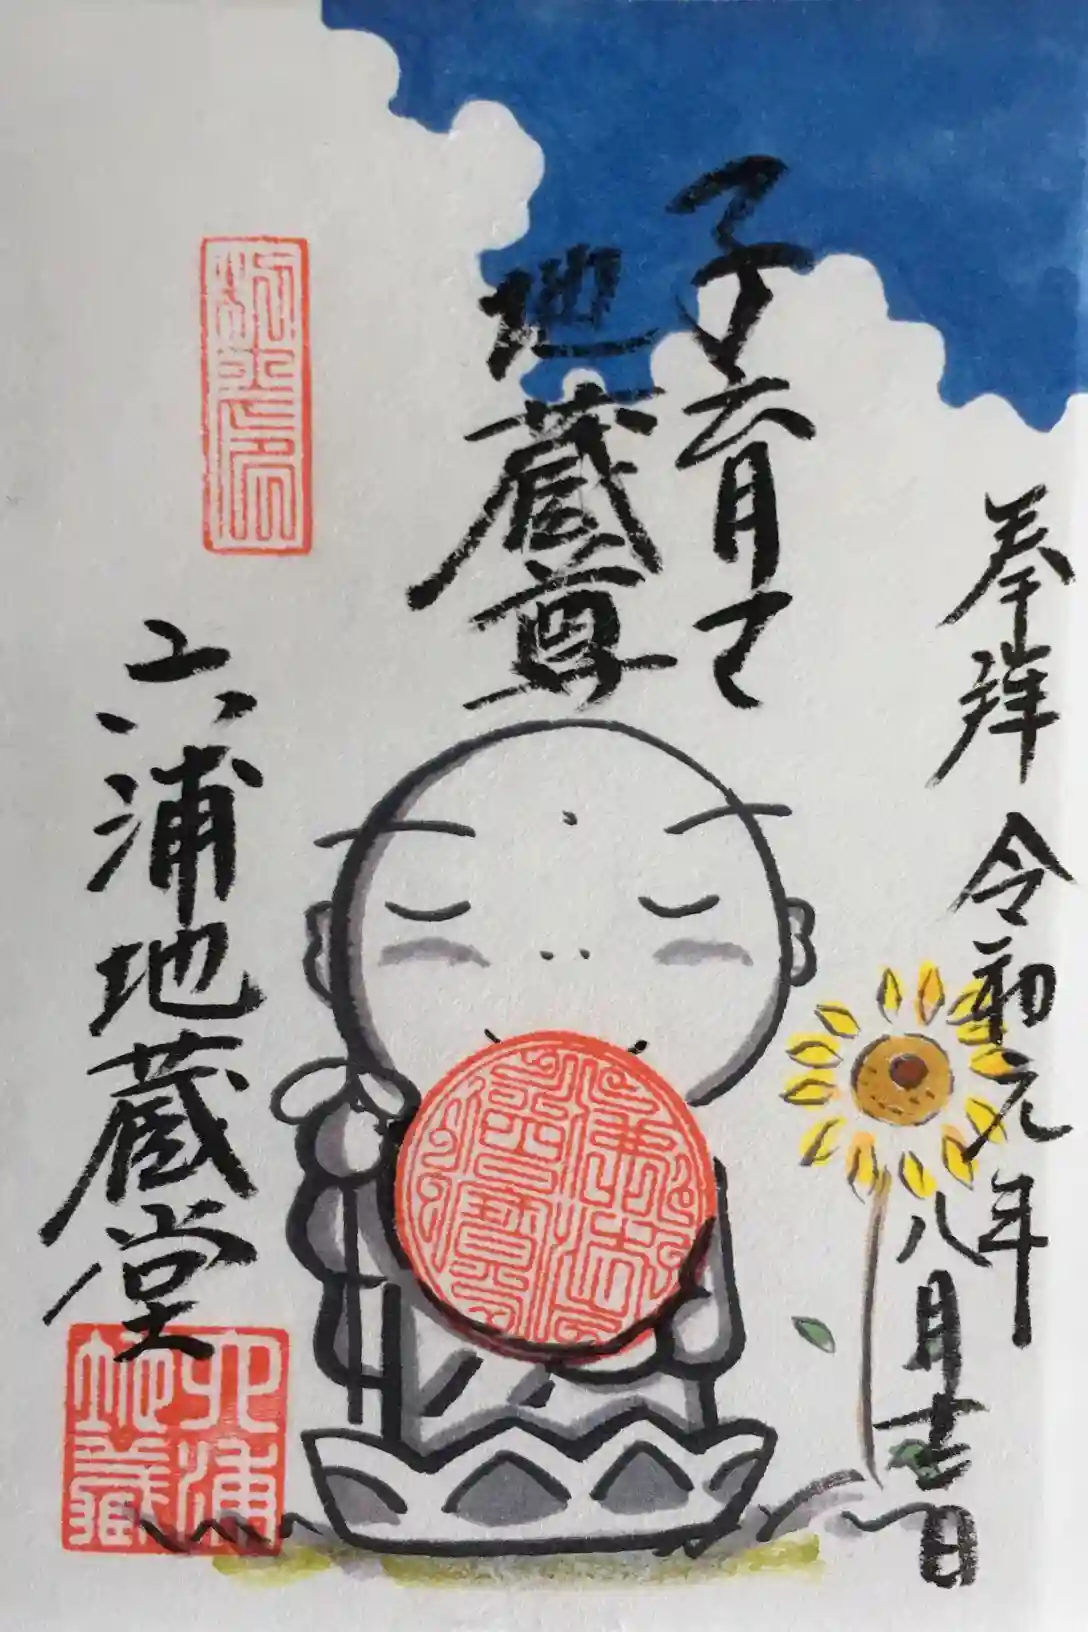 奉拝 令和元年
八月吉日
子育て
地蔵尊
六浦地蔵堂
六浦
地蔵